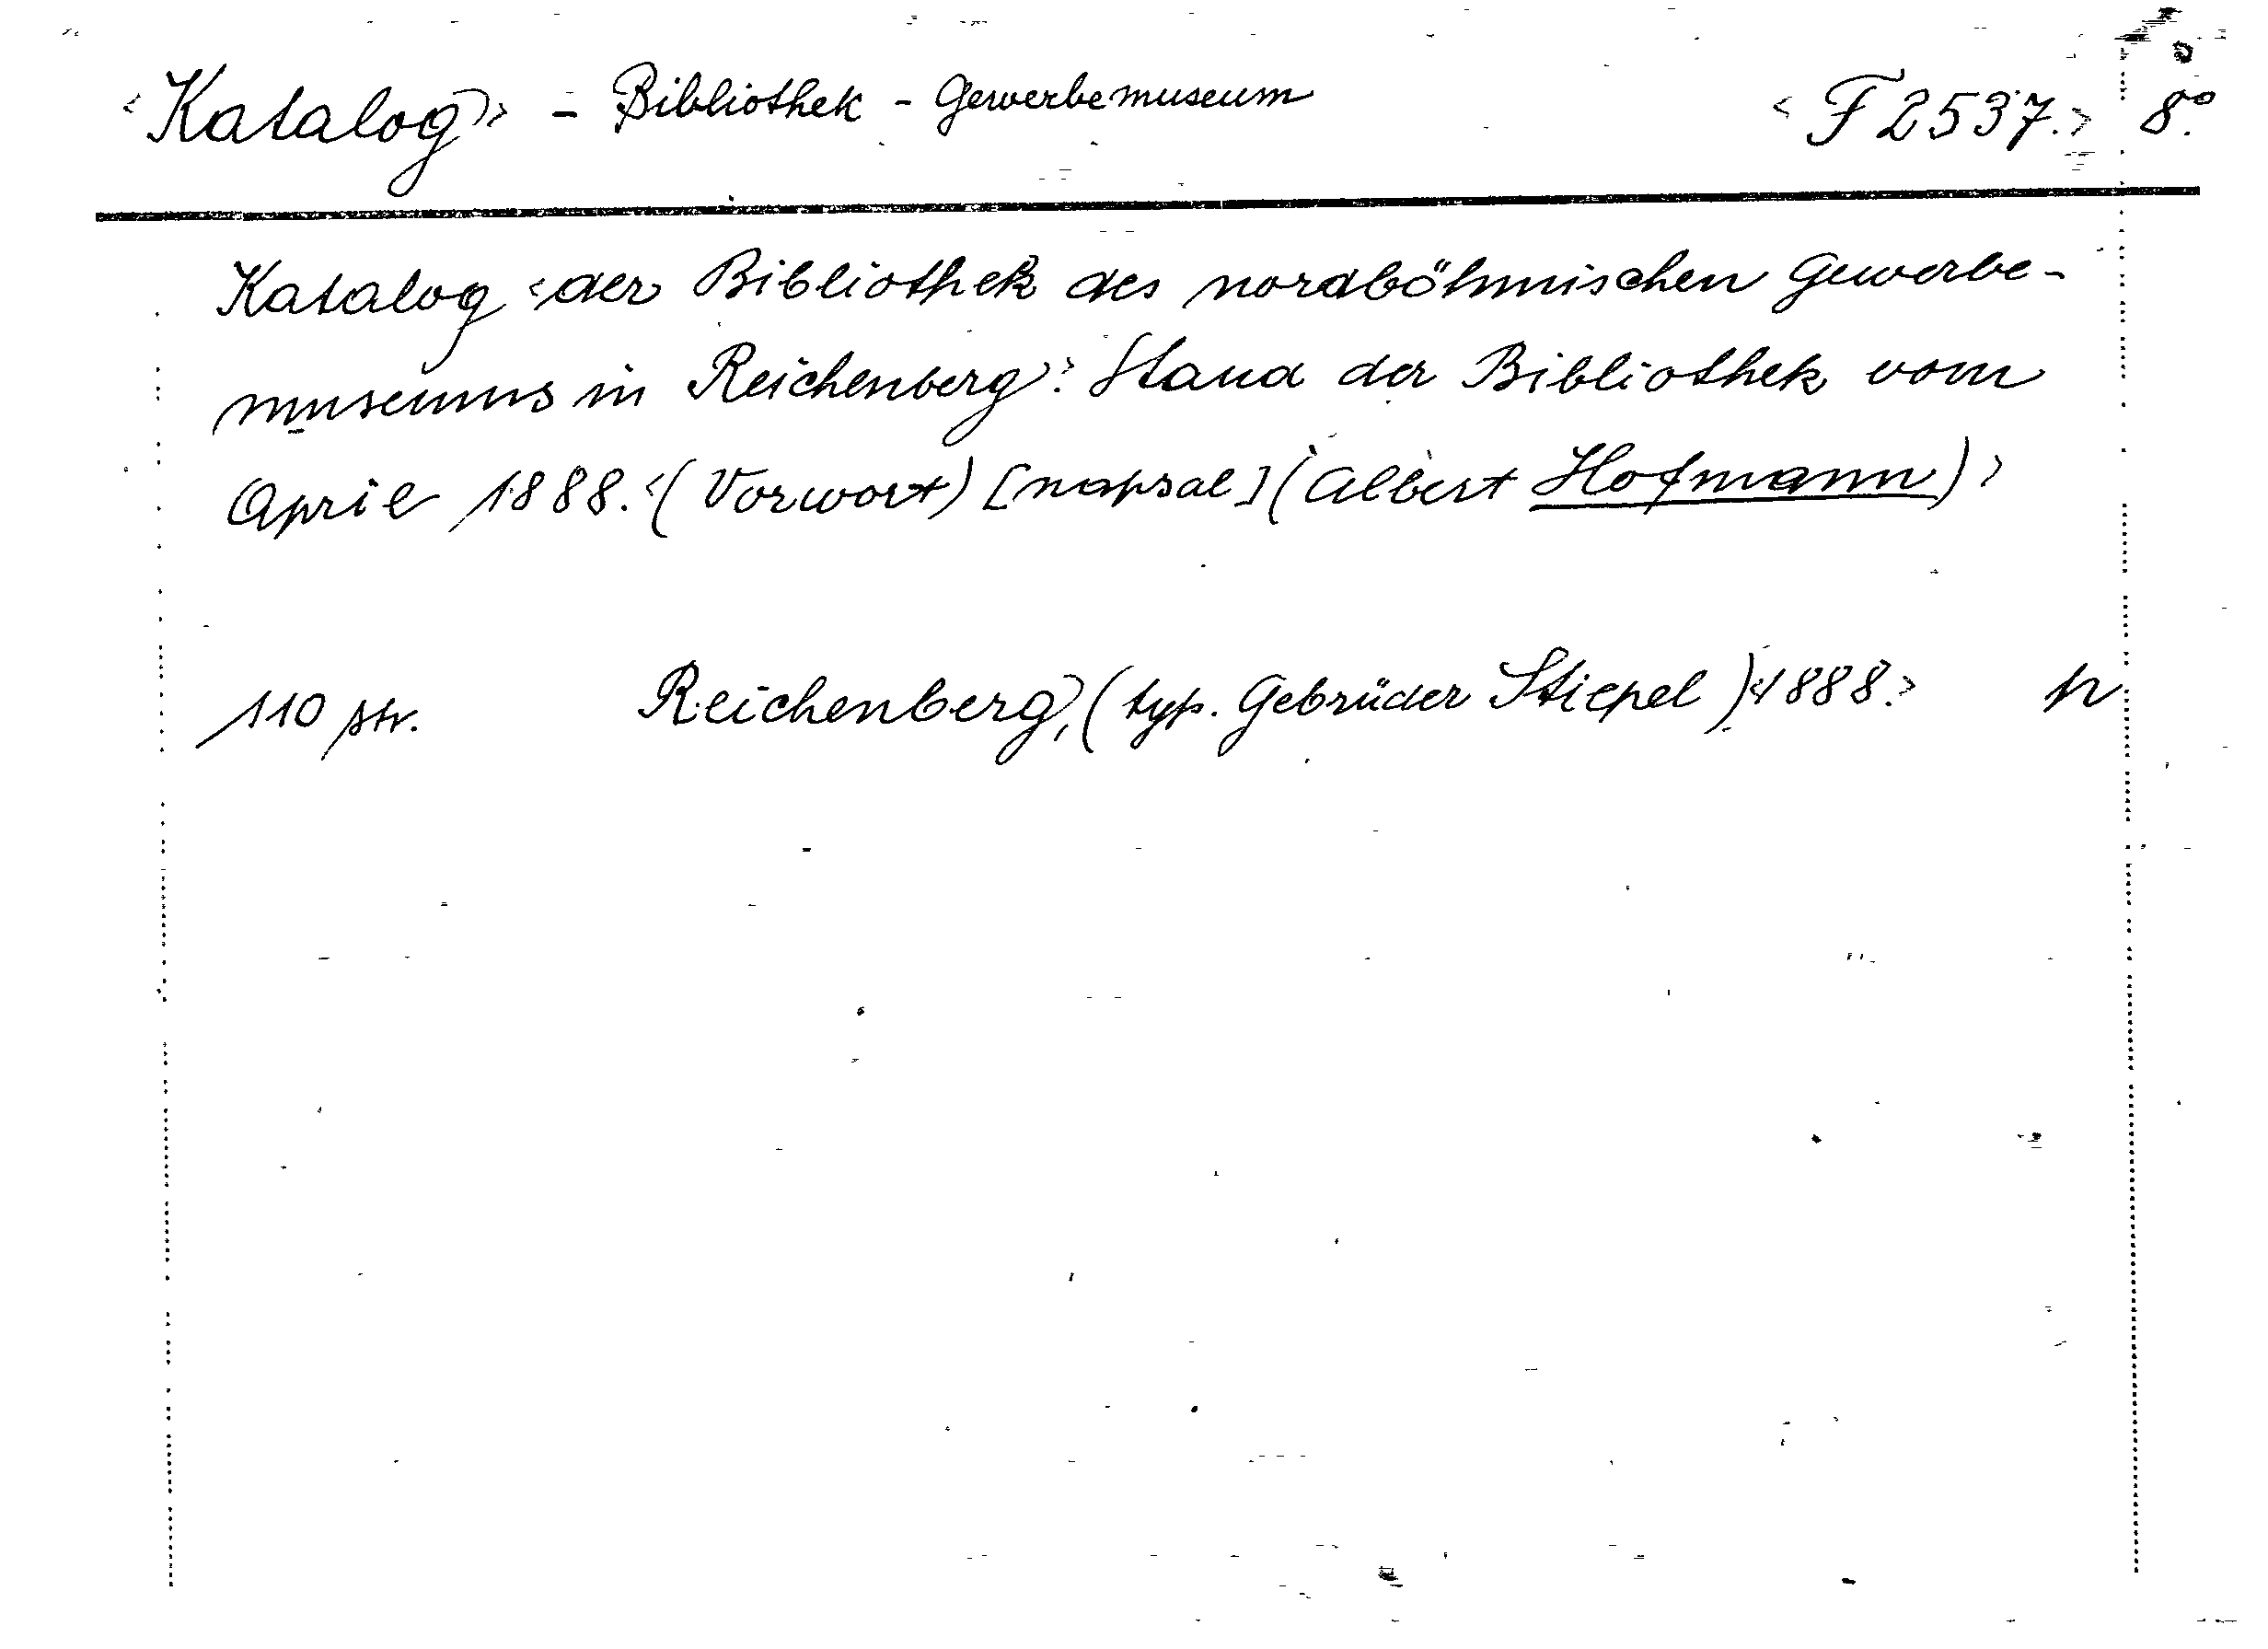 ‹Katalog› - Bibliothek - Gewerbemuseum ‹F 2537.› 8°.
Katalog ‹der Bibliothek des nordböhmischen Gewerbe-
museums in Reichenberg›. Stand der Bibliothek vom
April 1888. ‹(Vorwort) [napsal] (Albert Hofmann)›
110 str. Reichenberg, (typ. Gebrüder Stiepel) ‹1888.› n